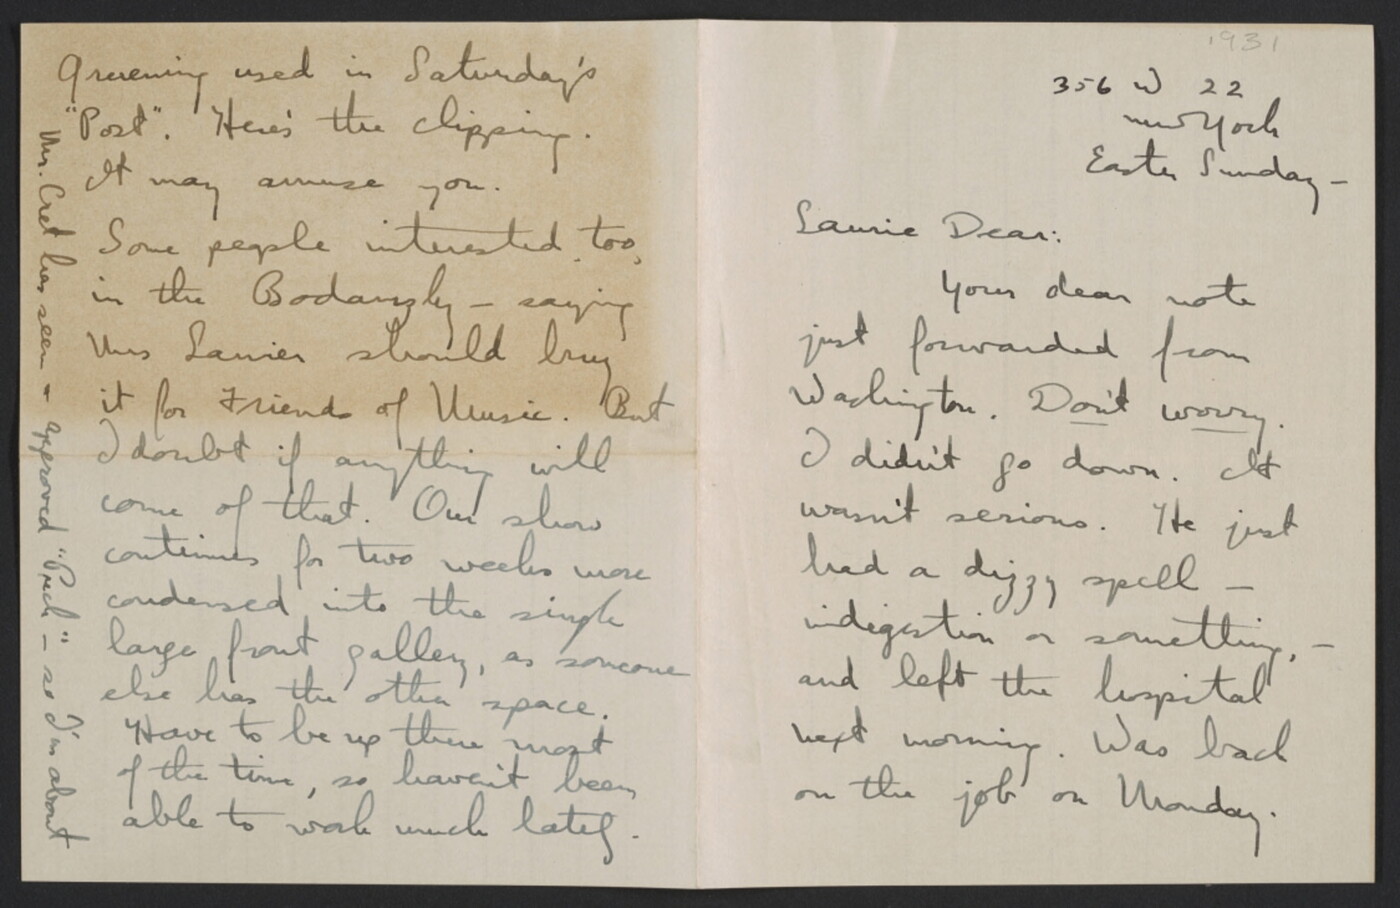 1931
356 W 22
New York
Easter Sunday –
Laurie Dear:
Your dear note
just forwarded from
Washington. Don't worry.
I didn't go down. It
wasn't serious. He just
had a dizzy spell –
indigestion or something, –
and left the hospital
next morning. Was back
on the job on Monday.
Gruening used in Saturday's
"Post". Here's the clipping.
It may amuse you.
Some people interested, too,
in the Bodanzky – saying
Mrs Lanier should buy
it for Friends of Music. But
I doubt if anything will
come of that. Our show
continues for two weeks more
condensed into the single
large front gallery, as someone
else has the other space.
Have to be up there most
of the time, so haven't been
able to work much lately.
Mr. Cret has seen + approved "Puck" – so I'm about